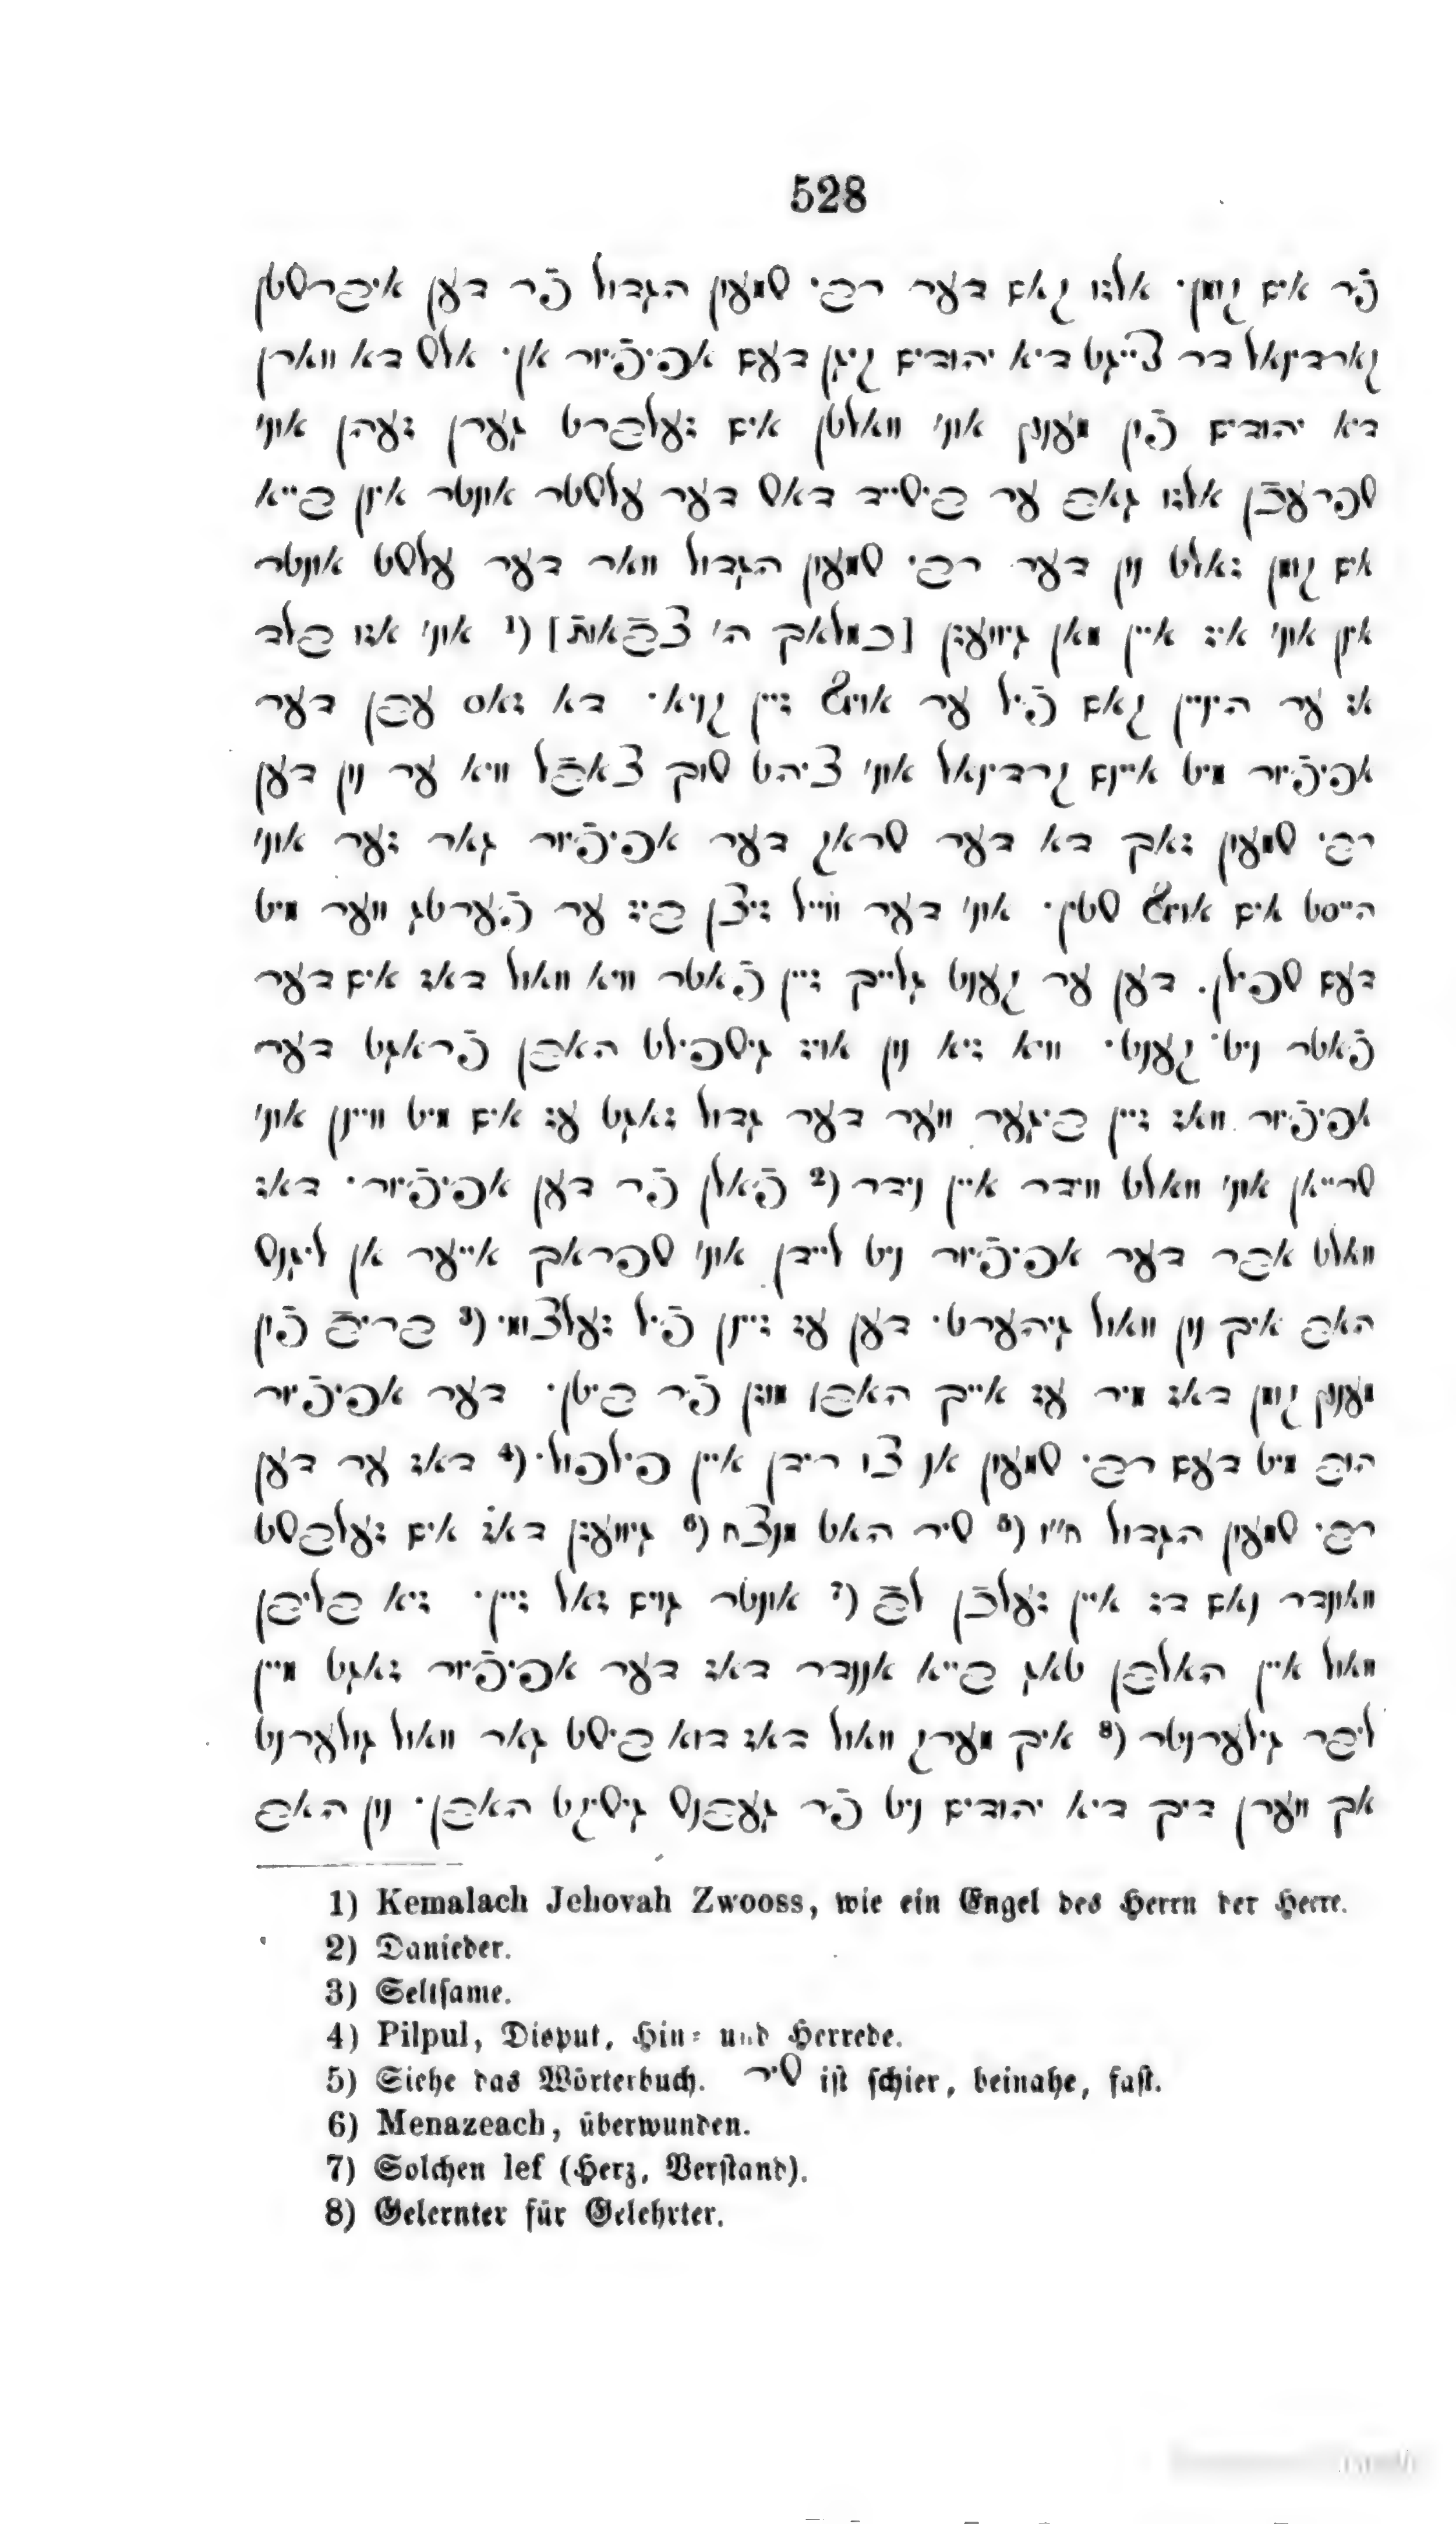 528
פֿר אים קומן· אלזו קאם דער רבי שמעון הגדול פֿר דען איברשטן
קארדינאל דר צייגט דיא יהודים קיגן דעם אפיפֿיור אן· אלש דא ווארן
דיא יהודים פֿון מענץ אוני וואלטן אים זעלברט גערן זעהן אוני
שפרעכֿן אלזו גאב ער בישייד דאש דער עלשטר אונטר אין בייא
אים קומן זאלט נון דער רבי שמעון הגדול וואר דער עלשט אונטר
אין אוני איז איין מאן גיוועזן [כמלאך ה' צבֿאותֿ] (¹ אוני אזו בלד
אז ער היניין קאם פֿיל ער אויף זיין קניא· דא זאס עבן דער
אפיפֿיור מיט איינם קרדינאל אוני ציהט שוך צאבֿל וויא ער נון דען
רבי שמעון זאך דא דער שראק דער אפיפֿיור גאר זער אוני
הייסט אים אויף שטין· אוני דער ווייל זיצן ביז ער פֿערטג ווער מיט
דעם שפילן. דען ער קענט גלייך זיין פֿאטר וויא וואול דאז אים דער
פֿאטר ניט קענט· וויא זיא נון אויז גישפילט האבן פֿראגט דער
אפיפֿיור וואז זיין ביגער ווער דער גדול זאגט עז אים מיט וויינן אוני
שרייאן אוני וואלט ווידר איין נידר (² פֿאלן פֿר דען אפיפֿיור· דאז
וואלט אבר דער אפיפֿיור ניט ליידן אוני שפראך אייער אן ליגנש
האב איך נון וואול גיהערט· דען עז זיינן פֿיל זעלצומי (³ בריבֿ פֿון
מענץ קומן דאז מיר עז אייך האבן מוזן פֿר ביטן· דער אפיפֿיור
הוב מיט דעם רבי שמעון אן צו רידן איין פילפול· (⁴ דאז ער דען
רבי שמעון הגדול ח״ו (⁵ שיר האט מנצח (⁶ גיוועזן דאז אים זעלבשט
וואונדר נאם דז איין זעלכֿן לבֿ (⁷ אונטר גוים זאל זיין· זיא בליבן
וואול איין האלבן טאג בייא אננדר דאז דער אפיפֿיור זאגט מיין
ליבר גילערנטר (⁸ איך מערק וואול דאז דוא בישט גאר וואול גולערנט
אך ווערן דיך דיא יהודים ניט פֿר געבנש גישיקט האבן· נון האב
1) Kemalach Jehovah Zwooss, wie ein Engel des Herrn der Heere.
2) Danieder.
3) Seltsame.
4) Pilpul, Disput, Hin- und Herrede.
5) Siehe das Wörterbuch. שיר ist schier, beinahe, fast.
6) Menazeach, überwunden.
7) Solchen lef (Herz, Verstand).
8) Gelernter für Gelehrter.